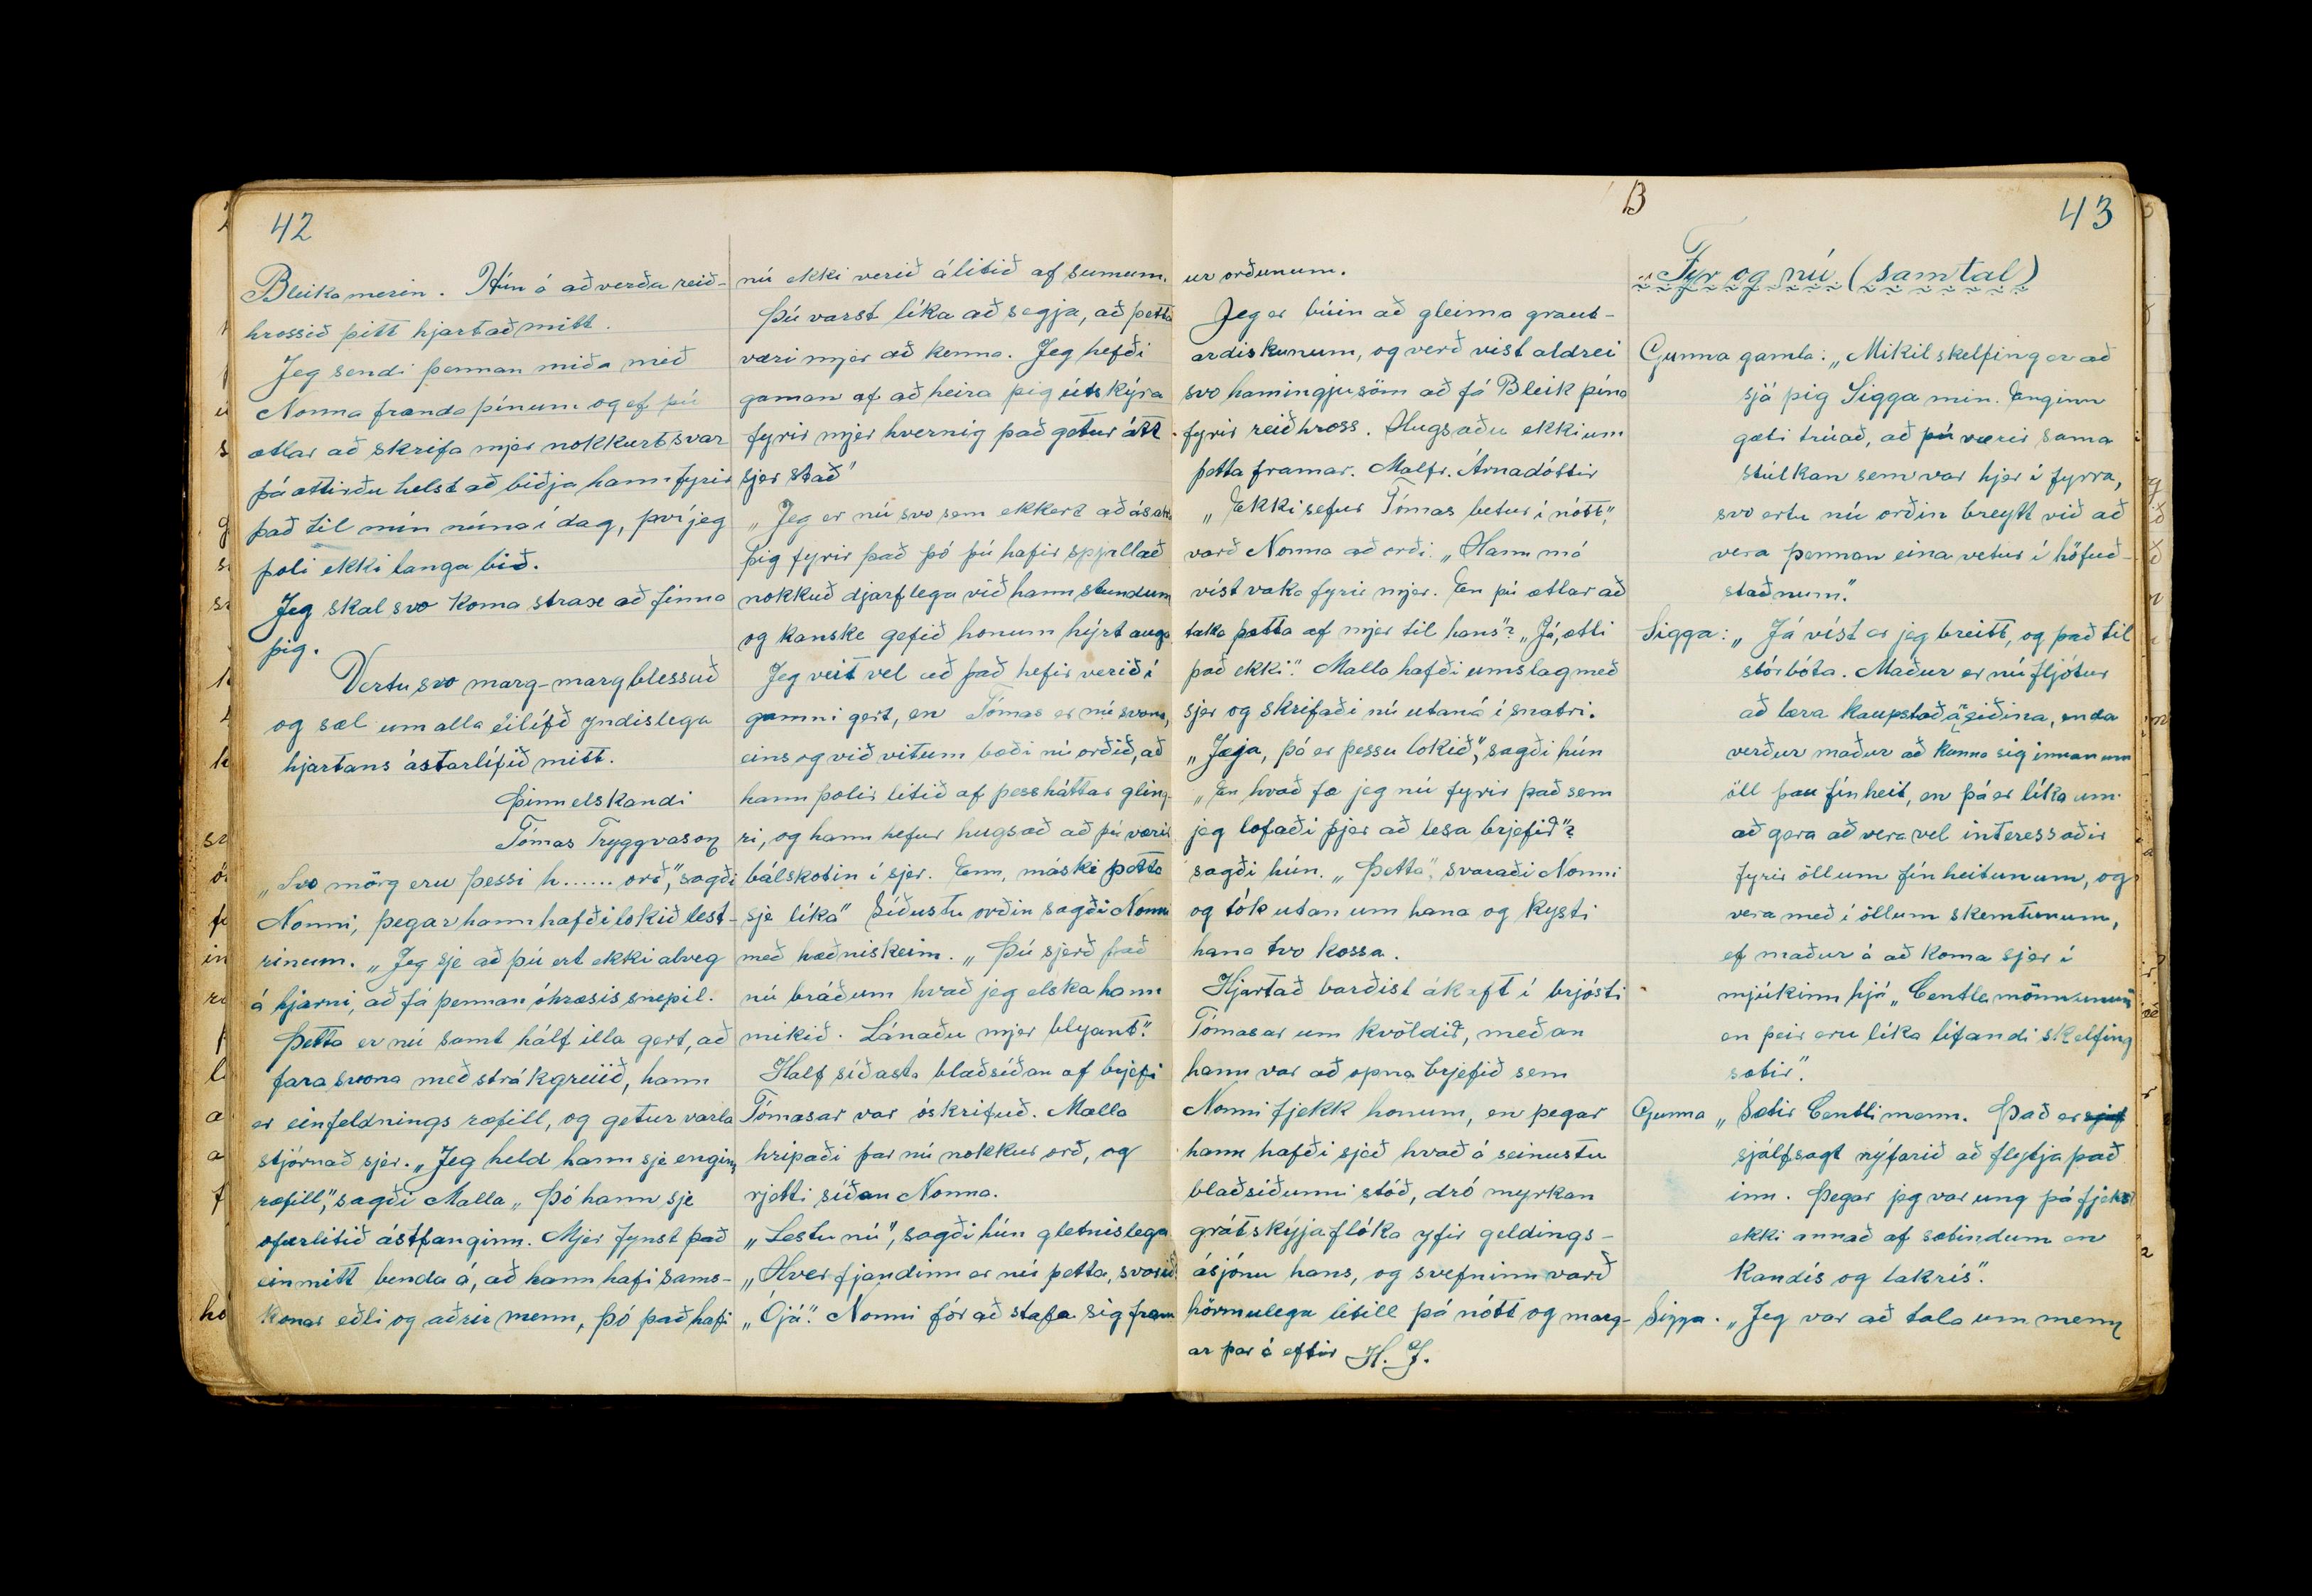 42
Bleika merin. Hún á að verða reið-
hrossið þitt hjartað mitt.
Jeg sendi þennan miða með
Nonna frænda þínum og ef þú
ætlar að skrifa mjer nokkurt svar
þá ættirðu helst að biðja hann fyrir
það til mín núna í dag, því jeg
þoli ekki langa bið.
Jeg skal svo koma strax að finna
þig.
Vertu svo marg-marg blessuð
og sæl um alla eilífð yndislega
hjartans ástarlífið mitt.
Þinn elskandi
Tómas Tryggvason
„Svo mörg eru þessi h...... orð", sagði
Nonni, þegar hann hafði lokið lest-
rinum. „Jeg sje að þú ert ekki alveg
á hjarni, að fá þennan óhræsis snepil.
Þetta er nú samt hálf illa gert, að
fara svona með strákgreiið, hann
er einfeldnings ræfill, og getur varla
stjórnað sjer. „Jeg held hann sje enginn
ræfill", sagði Malla „Þó hann sje
ofurlitið ástfanginn. Mjer fynst það
einmitt benda á, að hann hafi sams-
konar eðli og aðrir menn, þó það hafi
nú ekki verið álitið af sumum.
Þú varst líka að segja, að þetta
væri mjer að kenna. Jeg hefði
gaman af að heira þig útskýra
fyrir mjer hvernig það getur átt
sjer stað"
„Jeg er nú svo sem ekkert að ásaka
þig fyrir það þó þú hafir spjallað
nokkuð djarflega við hann stundum
og kanske gefið honum hýrt auga
Jeg veit vel að það hefir verið í
gamni gert, en Tómas er nú svona,
eins og við vitum bæði nú orðið, að
hann þolir litið af þessháttar gling-
ri, og hann hefur hugsað að þú værir
bálskotin í sjer. Enn, máski þetta
sje líka" Síðustu orðin sagði Nonni
með hæðniskeim. „Þú sjerð það
nú bráðum hvað jeg elska hann
mikið. Lánaðu mjer blyant".
Half síðasta blaðsíðan af brjefi
Tómasar var óskrifuð. Malla
hripaði þar nú nokkur orð, og
rjetti síðan Nonna.
„Lestu nú", sagði hún gletnislega
„Hver fjandinn er nú þetta, svarið
„Ójá". Nonni fór að stafa sig fram
B
43
ur orðunum.
Jeg er búin að gleima graut-
ardiskunum, og verð vist aldrei
svo hamingjusöm að fá Bleik þína
fyrir reiðhross. Hugsaðu ekki um
þetta framar. Malfr. Árnadóttir
„Ekki sefur Tómas betur í nótt",
varð Nonna að orði. „Hann má
vist vaka fyrir mjer. En þú ætlar að
taka þetta af mjer til hans"? „Já, ætli
það ekki". Malla hafði umslag með
sjer og skrifaði nú utaná í snatri.
„Jæja, þá er þessu lokið", sagði hún
„En hvað fæ jeg nú fyrir það sem
jeg lofaði þjer að lesa brjefið"?
sagði hún. „Þetta", svaraði Nonni
og tók utan um hana og kysti
hana tvo kossa.
Hjartað barðist ákaft í brjósti
Tómasar um kvöldið, meðan
hann var að opna brjefið sem
Nonni fjekk honum, en þegar
hann hafði sjeð hvað á seinustu
blaðsíðunni stóð, dró myrkan
grátskýjaflóka yfir geldings-
ásjónu hans, og svefninn varð
hörmulega litill þá nótt og marg-
ar þar á eftir H. J.
Fyr og nú (samtal)
Gunna gamla: „Mikil skelfing er að
sjá þig Sigga min. Enginn
gæti trúað, að þú værir sama
stúlkan sem var hjer í fyrra,
svo ertu nú orðin breytt við að
vera þennan eina vetur í höfuð-
staðnum".
Sigga: „Já víst er jeg breitt, og það til
stórbóta. Maður er nú fljótur
að læra kaupstaða siðina, enda
verður maður að kunna sig innan um
öll þau fínheit, en þá er líka um
að gera að vera vel interessaðir
fyrir öllum fínheitunum, og
vera með í öllum skemtunum,
ef maður á að koma sjer í
mjúkinn hjá „Centlemönnunum
en þeir eru líka lifandi skelfing
sætir".
Gunna „Sætir Centlimenn. Það er sjáf
sjálfsagt nýfarið að flytja það
inn. Þegar jeg var ung þá fjekst
ekki annað af sætindum en
Kandís og lakrís".
Sigga. „Jeg var að tala um menn